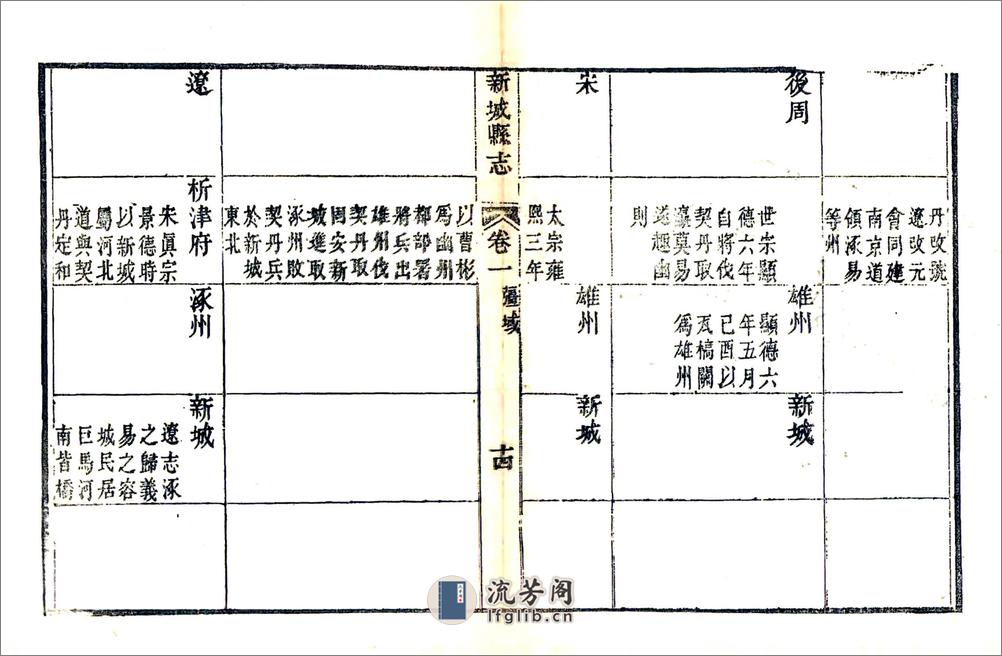 丹改號
遼改元
會同建
南京道
領涿易
等州
後周
世宗顯
德六年
自將伐
契丹取
瀛莫易
遂趨幽
則
雄州
顯德六
年五月
己酉以
瓦橋關
爲雄州
新城
宋
太宗雍
熙三年
雄州
新城
新城縣志
卷一
疆域
十四
以曹彬
爲幽州
都部署
將兵出
雄州伐
契丹取
固安新
城進取
涿州敗
契丹兵
於新城
東北
遼
析津府
宋眞宗
景德時
以新城
屬河北
道與契
丹定和
涿州
新城
遼志涿
之歸義
易之容
城民居
巨馬河
南皆橋
流芳阁
lfglib.cn